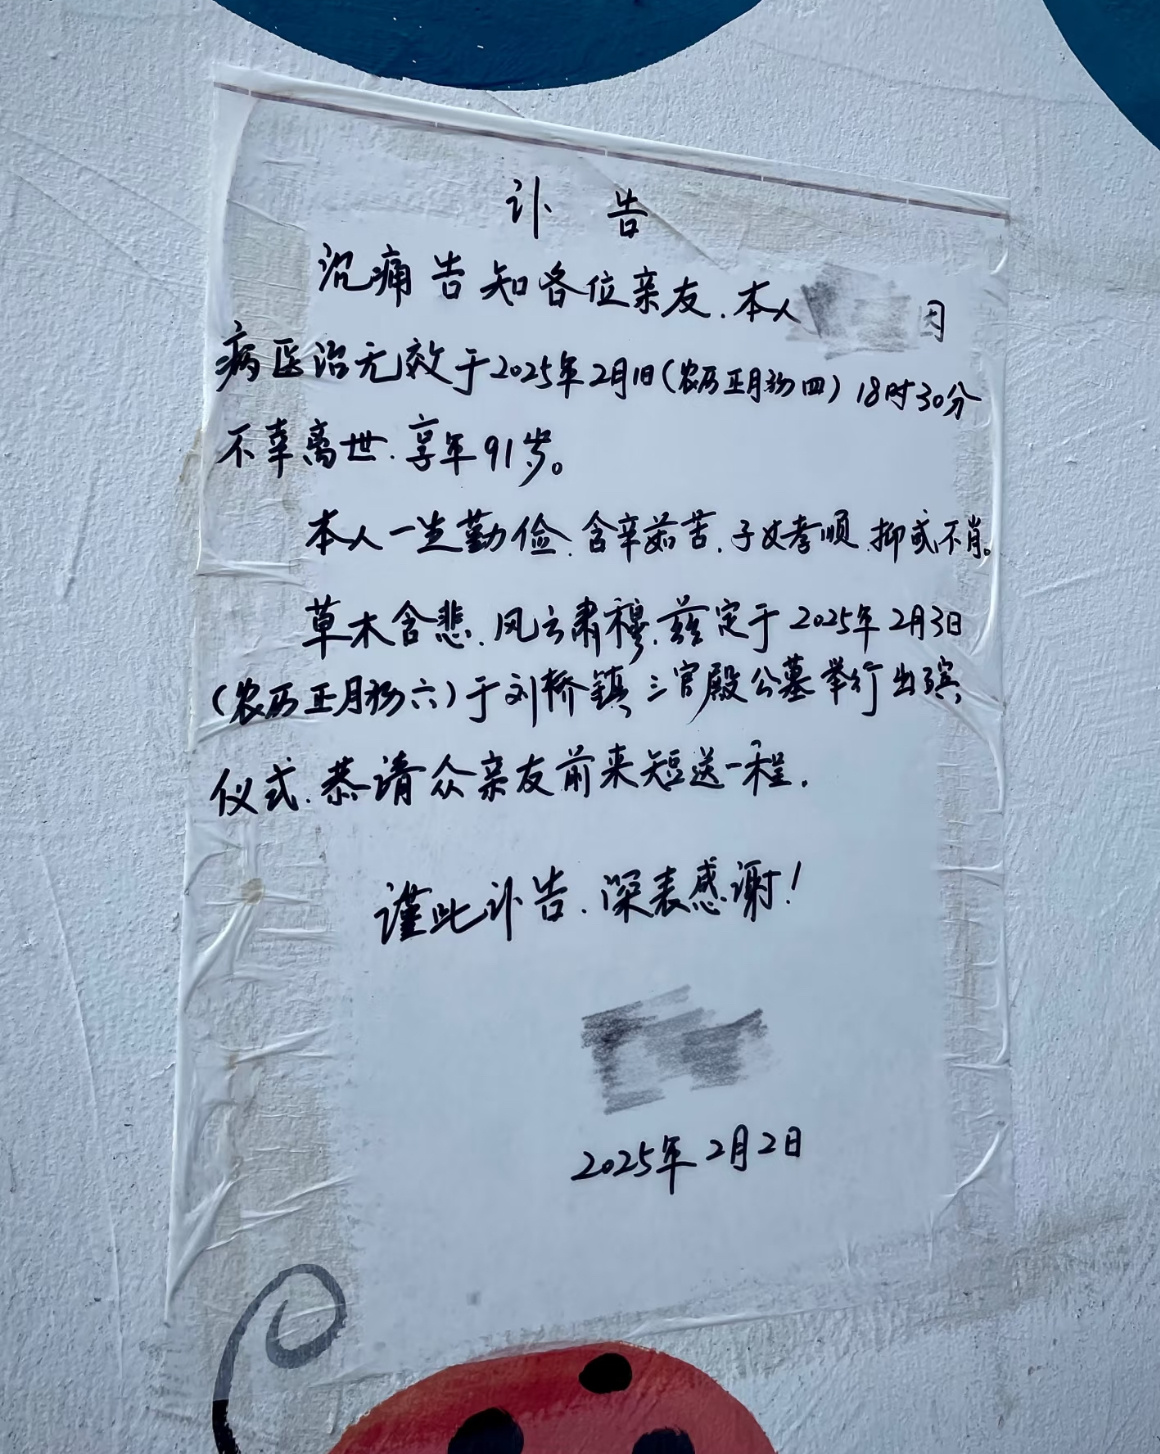 讣告
沉痛告知各位亲友.本人 因
病医治无效于2025年2月1日(农历正月初四)18时30分
不幸离世.享年91岁。
本人一生勤俭.含辛茹苦.子女孝顺.抑或不肖。
草木含悲.风云肃穆.兹定于2025年2月3日
(农历正月初六)于刘桥镇三官殿公墓举行出殡
仪式.恭请众亲友前来短送一程.
谨此讣告.深表感谢!
2025年2月2日